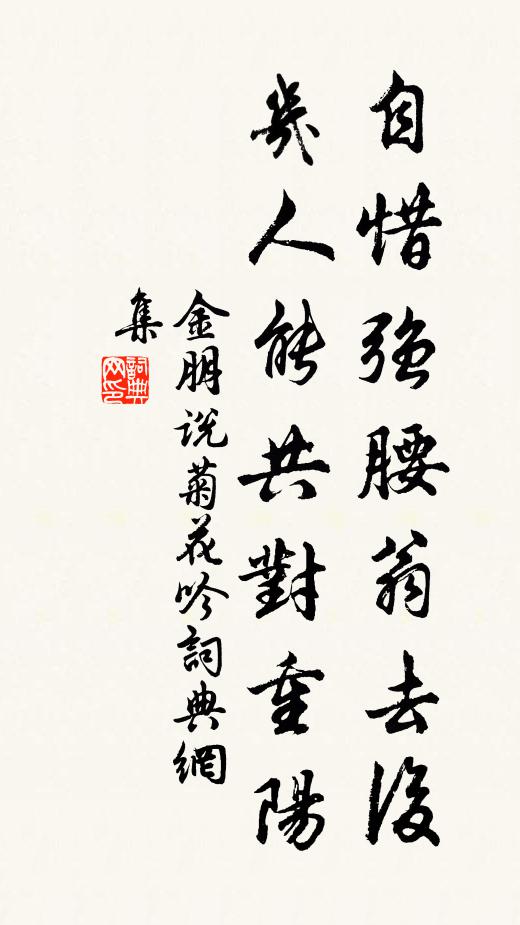 自惜強腰翁去後
幾人能共對重陽
金朋説菊花吟詞典網
集
詞典
網印